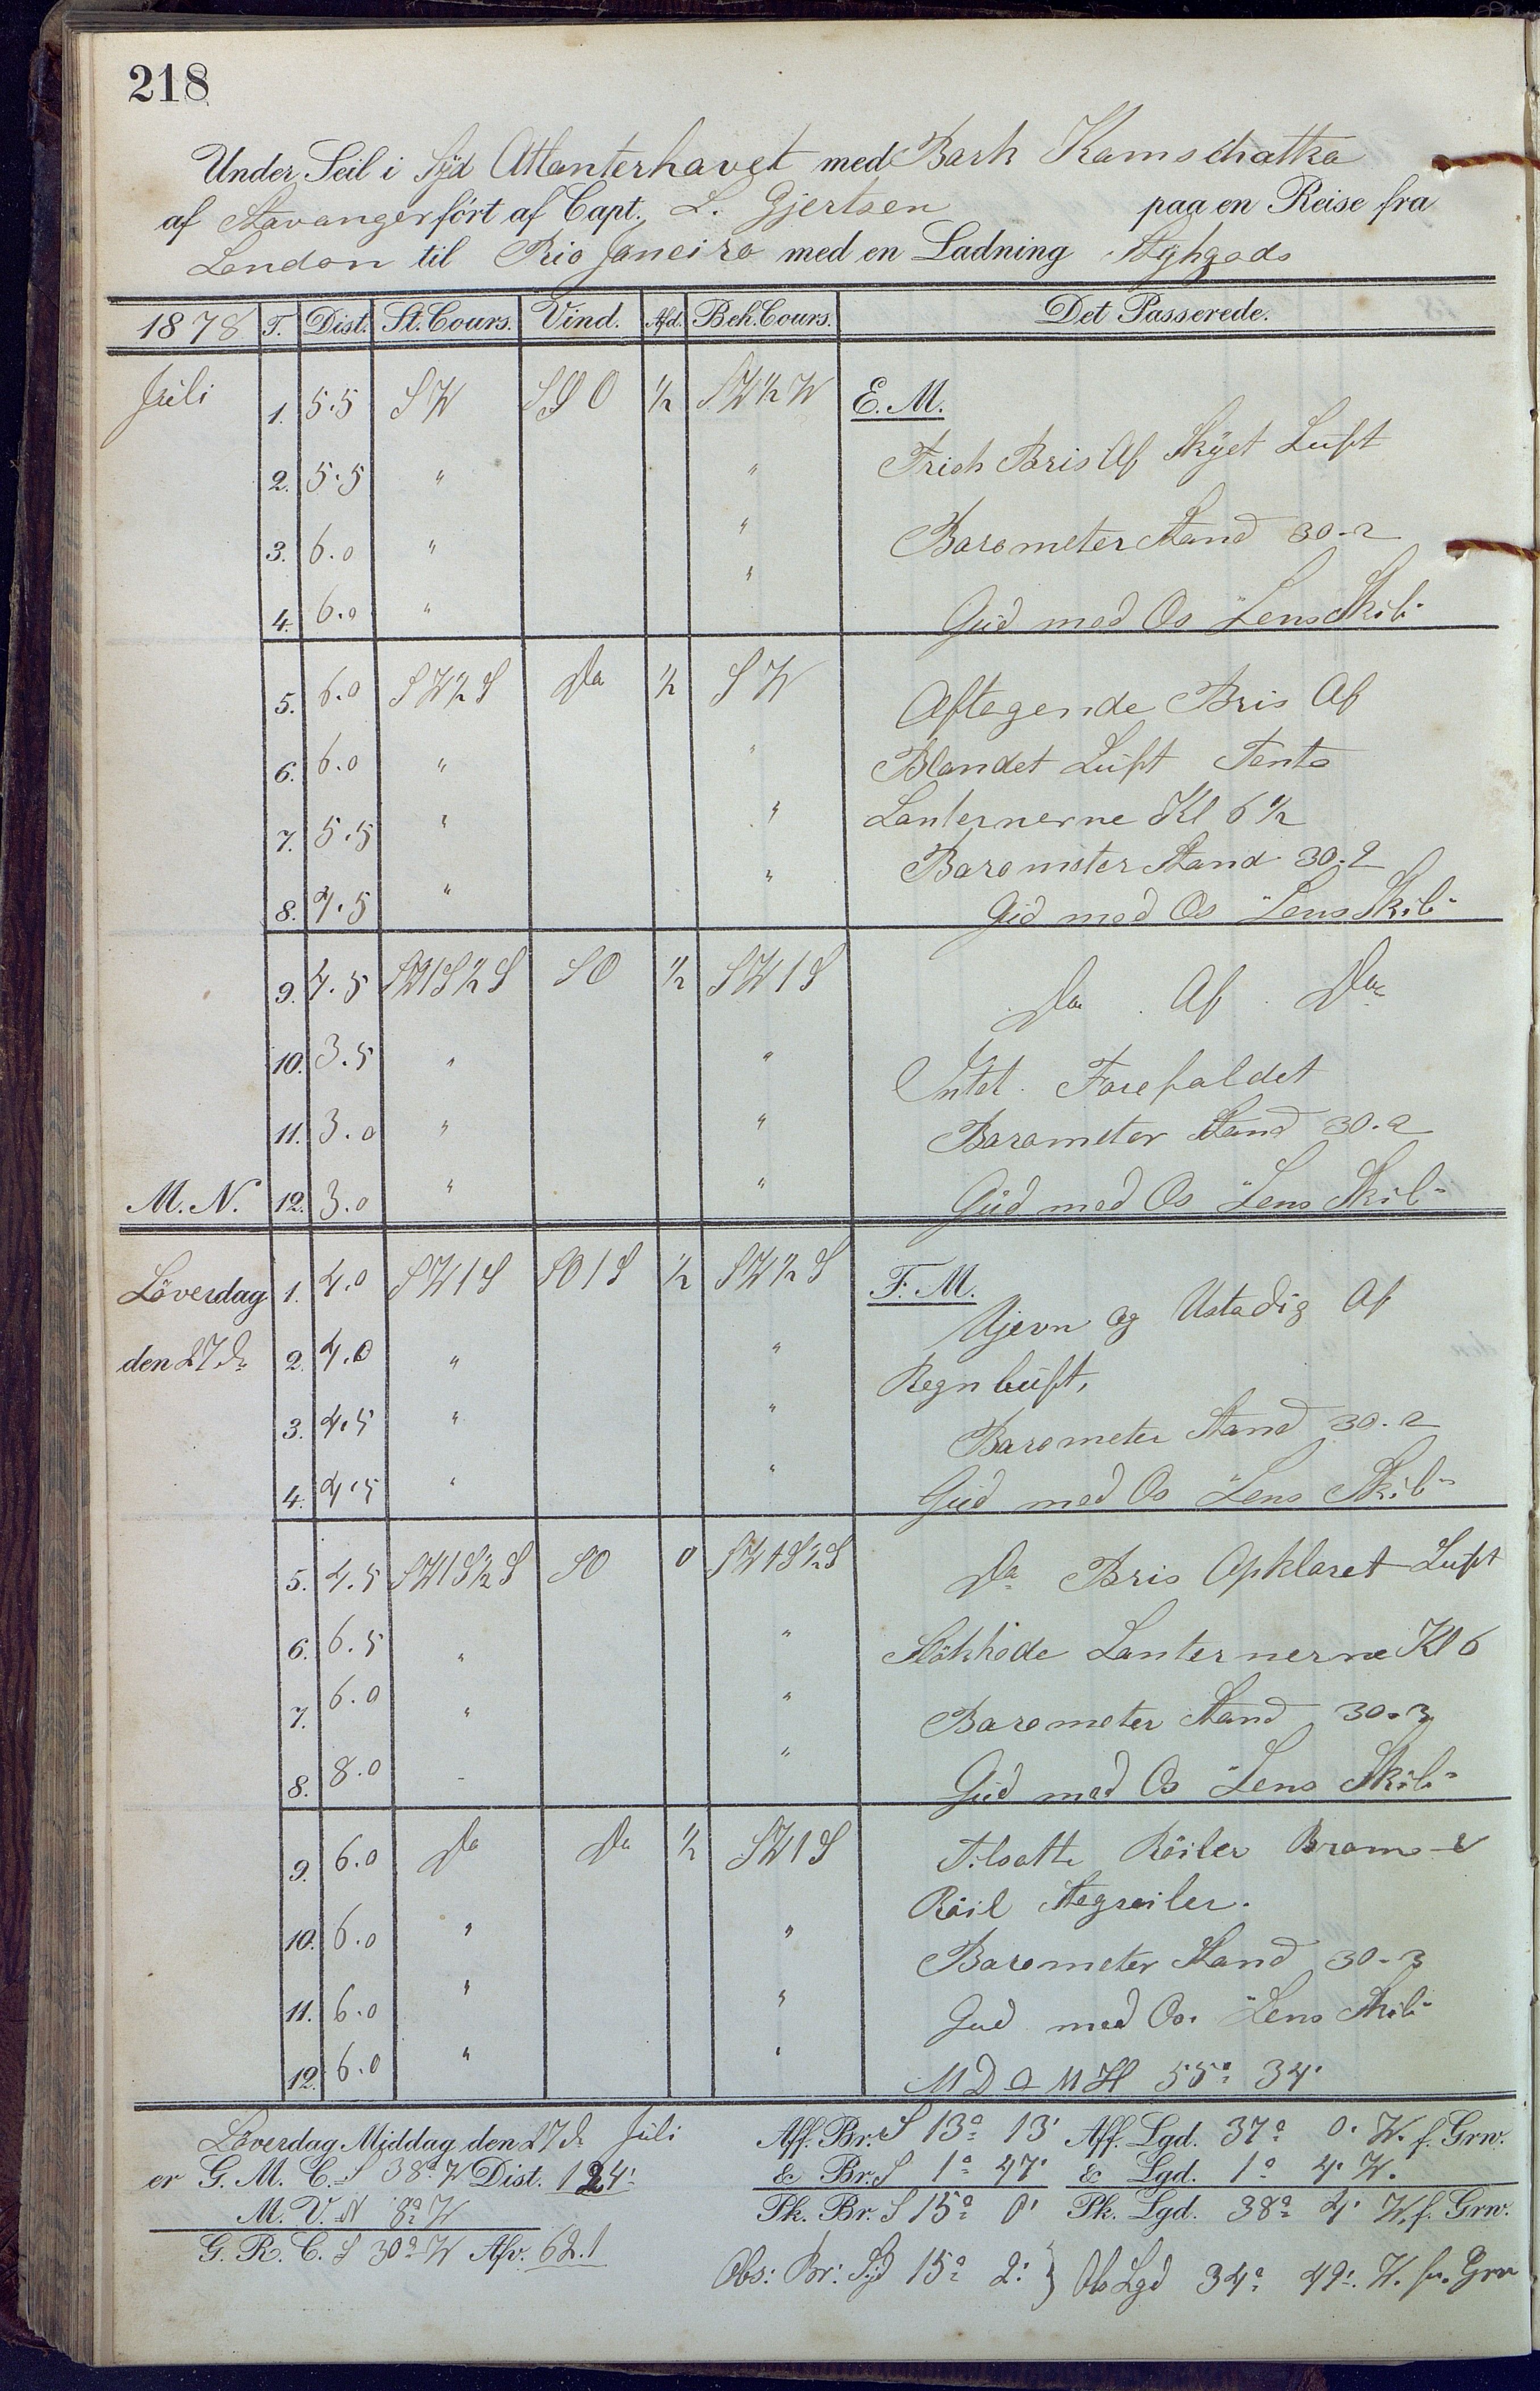 218
Under Seil i Syd Atlanterhavet med Bark Kamschatka
af Stavanger fört af Capt. L. Gjertsen paa en Reise fra
London til Rio Janeiro med en Ladning Stykgods
1878 T. Dist. St. Cours. Vind. Afd. Beh. Cours. Det Passerede.
Juli 1. 5.5 SW SSO ½ SW½W E. M.
2. 5.5 " " Frisk Bris Af Skÿet Luft
3. 6.0 " " Barometer Stand 30-2
4. 6.0 " " Gud med Os "Lens Skib"
5. 6.0 SW½S Do ½ SW Aftagende Bris Af
6. 6.0 " " Blandet Luft Tente
7. 5.5 " " Lanternerne Kl 6½
Barometer Stand 30-2
8. 4.5 " " Gud med Os "Lens Skib"
9. 4.5 SW1S½S SO ½ SW1S Do Af Do
10. 3.5 " " Intet Forefaldet
11. 3.0 " " Barometer Stand 30.2
M. N. 12. 3.0 " " Gud med Os "Lens Skib"
Löverdag 1. 4.0 SW1S SO1S ½ SW½S F. M.
Ujevn og Ustadig Af
den 27de 2. 4.0 " " Regn luft,
3. 4.5 " " Barometer Stand 30-2
4. 4.5 " " Gud med Os "Lens Skib"
5. 4.5 SW1S½S SO 0 SW1S½S Do Bris Opklaret Luft
6. 6.5 " " Slökkede Lanternerne Kl 6
7. 6.0 " " Barometer Stand 30-3
8. 8.0 " " Gud med Os "Lens Skib"
9. 6.0 Do Do ½ SW1S Tilsatte Röiler Bram- &
Röil Stagseiler.
10. 6.0 " " Barometer Stand 30-3
11. 6.0 " " Gud med Os. "Lens Skib"
12. 6.0 " " M D O M H 55° 34'
Löverdag Middag den 27de Juli Aff. Br. S 13° 13' Aff. Lgd. 37° 0' W. f. Grw.
er G. M. C. S 38° W Dist. 124' & Br. S 1° 47' & Lgd. 1° 4' W.
M. V. N 8° W Pk. Br. S 15° 0' Pk. Lgd. 38° 4' W. f. Grw.
G. R. C. S 30° W Afv. 62.1
Obs: Br: Syd 15° 2' } Ob Lgd 34° 49' W. fr. Grw